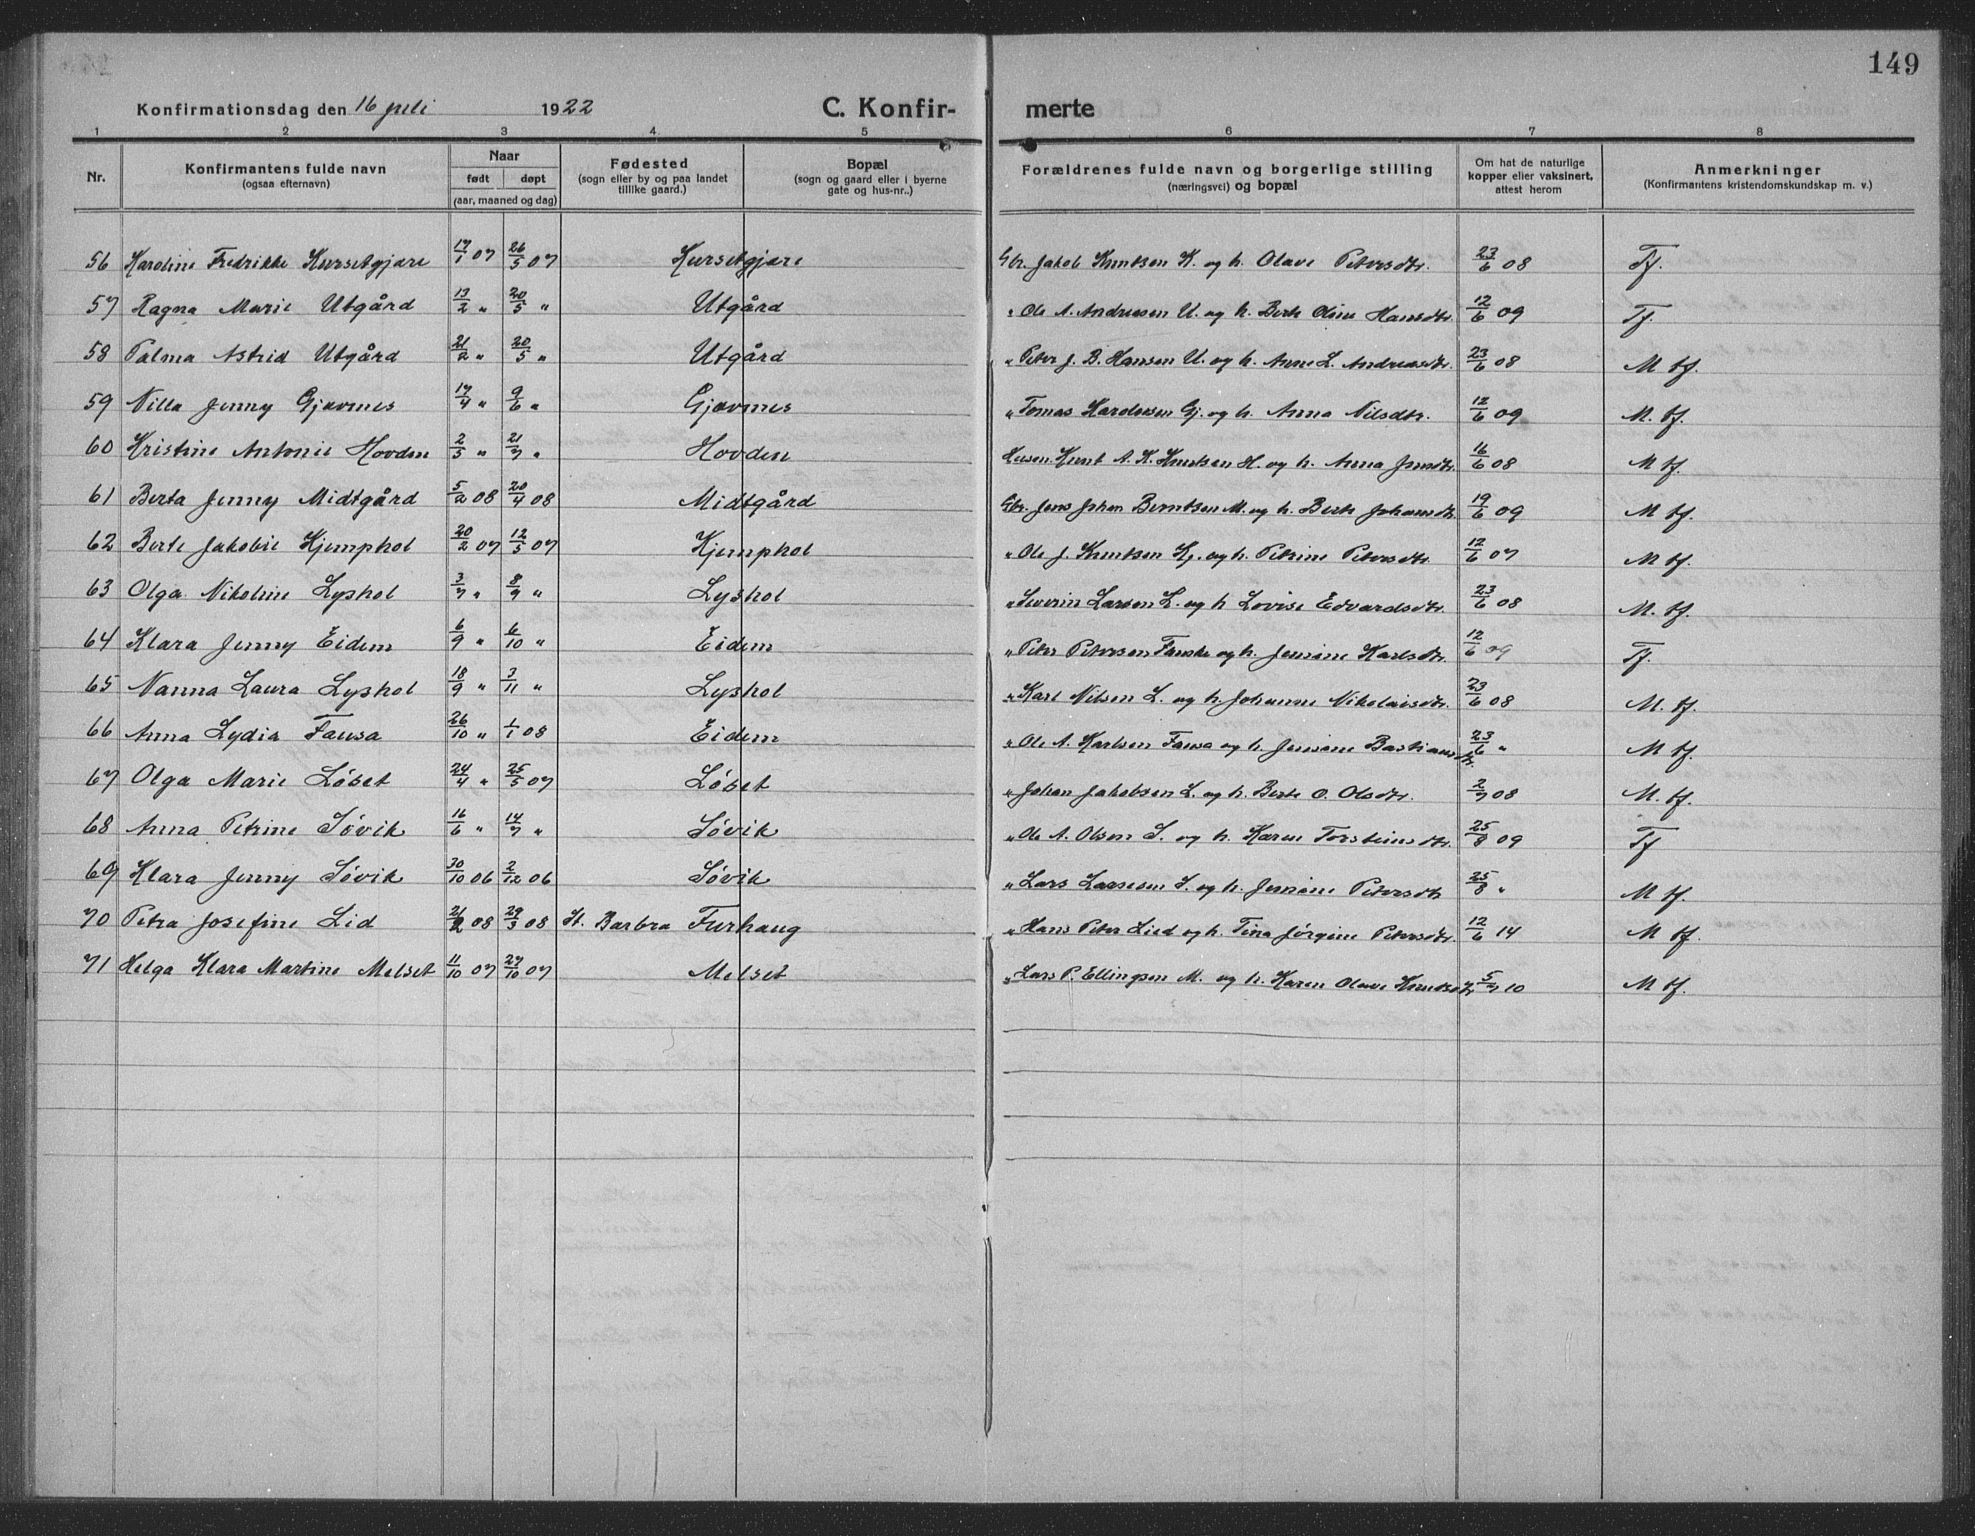 149
Konfirmationsdag den 16 juli 1922 C. Konfir- merte
1 2 3 4 5 6 7 8
Nr. Konfirmantens fulde navn (ogsaa efternavn) Naar født døpt (aar, maaned og dag) Fødested (sogn eller by og paa landet tillike gaard.) Bopæl (sogn og gaard eller i byerne gate og hus-nr..) Forældrenes fulde navn og borgerlige stilling (næringsvei) og bopæl Om hat de naturlige kopper eller vaksinert, attest herom Anmerkninger (Konfirmantens kristendomskundskap m. v.)
56 Karoline Fredrikke Hursetgjære 17/1 07 26/5 07 Hursetgjære Gbr. Jakob Knutsen H. og h. Olave Petersdtr. 23/6 08 Tf.
57 Ragna Marie Utgård 13/2 " 20/5 " Utgård " Ole A. Andreasen U. og h. Berte Oline Hansdtr. 12/6 09 Tf.
58 Palma Astrid Utgård 21/2 " 20/5 " Utgård " Peter J. B. Hansen U. og h. Anne L. Andreasdtr. 23/6 08 M tf.
59 Nilla Jenny Gjævnes 17/4 " 9/6 " Gjævnes " Tomas Haroldsen Gj. og h. Anna Nilsdtr. 12/6 09 M. tf.
60 Kristine Antonie Hovden 2/5 " 21/7 " Hovden Husm. Knut A. K. Knutsen H. og h. Anna Jensdtr. 16/6 08 M tf.
61 Berta Jenny Midtgård 5/2 08 20/4 08 Midtgård Gbr. Jens Johan Berntsen M. og h. Berte Johansdtr. 19/6 09 M tf.
62 Berte Jakobie Kjemphol 20/2 07 12/5 07 Kjemphol " Ole J. Knutsen Kj. og h. Petrine Petersdtr. 12/6 07 M tf.
63 Olga Nikoline Lyshol 3/7 " 8/9 " Lyshol " Severin Larsen L. og h. Lovise Edvardsdtr. 23/6 08 M. tf.
64 Klara Jenny Eidem 6/9 " 6/10 " Eidem " Peter Petersen og h. Jensine Karlsdtr. 12/6 09 Tf.
65 Nanna Laura Lyshol 18/9 " 3/11 " Lyshol " Karl Nilsen L. og h. Johanne Nikolaisdtr. 23/6 08 M. tf.
66 Anna Lydia Fausa 26/10 " 1/1 08 Eidem " Ole A. Karlsen Fausa og h. Jensine Bastiansdtr. 23/6 " M tf.
67 Olga Marie Løset 24/4 " 25/5 07 Løset " Johan Jakobsen L. og h. Berte O. Olsdtr. 2/7 08 M. tf.
68 Anna Petrine Søvik 16/6 " 14/7 " Søvik " Ole A. Olsen S. og h. Karen Torsteinsdtr. 25/8 09 Tf
69 Klara Jenny Søvik 30/10 06 2/12 06 Søvik " Lars Larsen S. og h. Jensine Petersdtr 25/8 " M tf.
70 Petra Josefine Lid 21/2 08 29/3 08 St. Barbra Furhaug " Hans Peter Lied og h. Tina Jørgine Petersdtr. 12/6 14 M tf.
71 Helga Klara Martine Melset 11/10 07 27/10 07 Melset " Lars P. Ellingsen M. og h. Karen Olave Knutsdtr. 5/7 10 M tf.